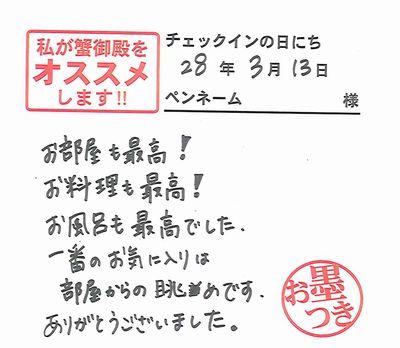 私が蟹御殿を
オススメ
します!!
チェックインの日にち
28年3月13日
ペンネーム 様
お部屋も最高!
お料理も最高!
お風呂も最高でした.
一番のお気に入りは
部屋からの眺めです.
ありがとうございました。
お墨つき